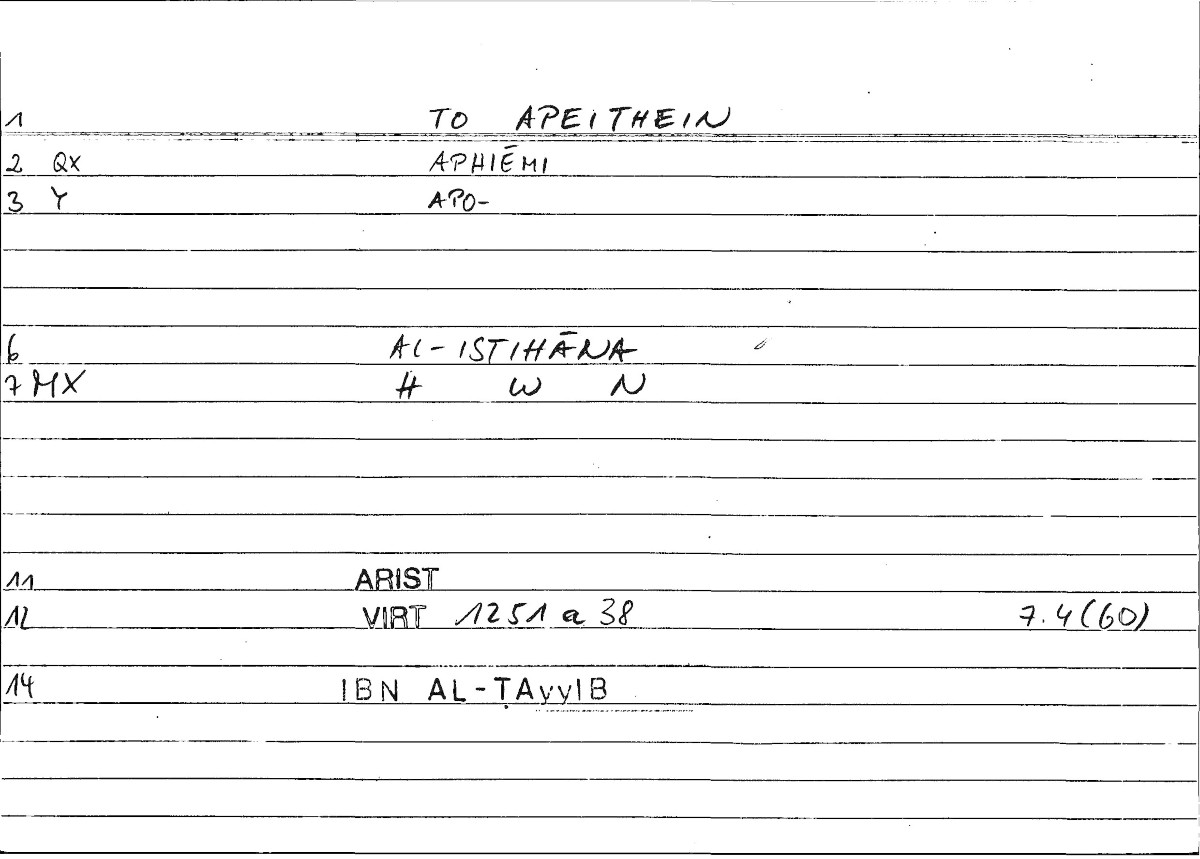 1 TO APEITHEIN
2 QX APHIĒMI
3 Y APO-
6 AL-ISTIHĀNA
7 MX H W N
11 ARIST
12 VIRT 1251 a 38 7.4(60)
14 IBN AL-ṬAyyIB